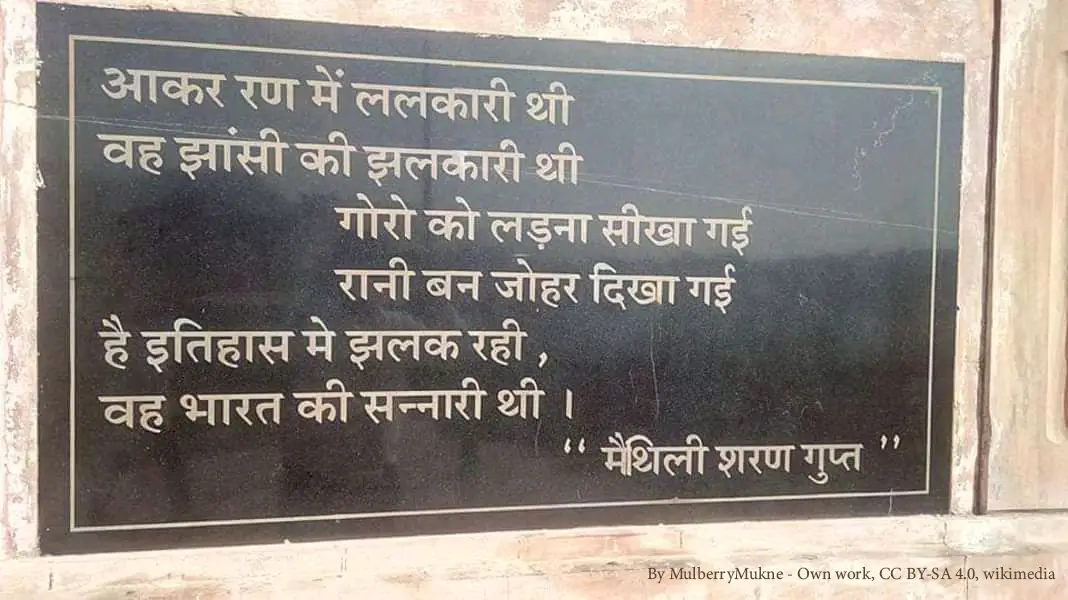 आकर रण में ललकारी थी
वह झांसी की झलकारी थी
गोरो को लड़ना सीखा गई
रानी बन जोहर दिखा गई
है इतिहास मे झलक रही ,
वह भारत की सन्नारी थी ।
“ मैथिली शरण गुप्त ”
By MulberryMukne - Own work, CC BY-SA 4.0, wikimedia